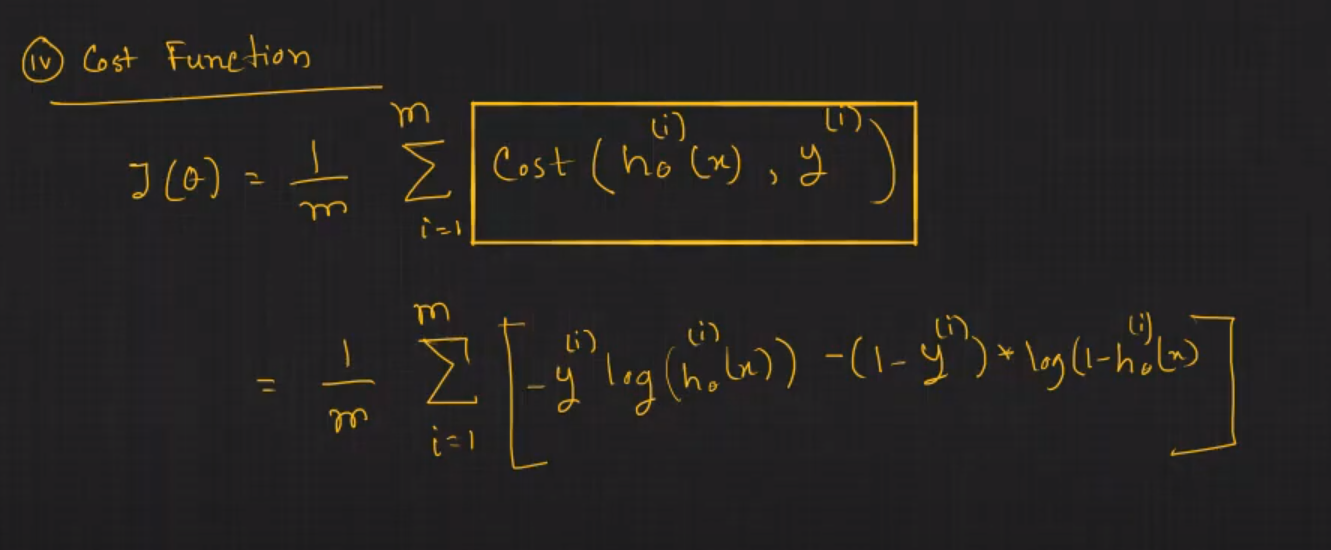 (iv) Cost Function
J(θ) = 1/m Σ_{i=1}^{m} Cost(h_θ^{(i)}(x), y^{(i)})
= 1/m Σ_{i=1}^{m} [-y^{(i)} log(h_θ^{(i)}(x)) - (1 - y^{(i)}) * log(1 - h_θ^{(i)}(x)]